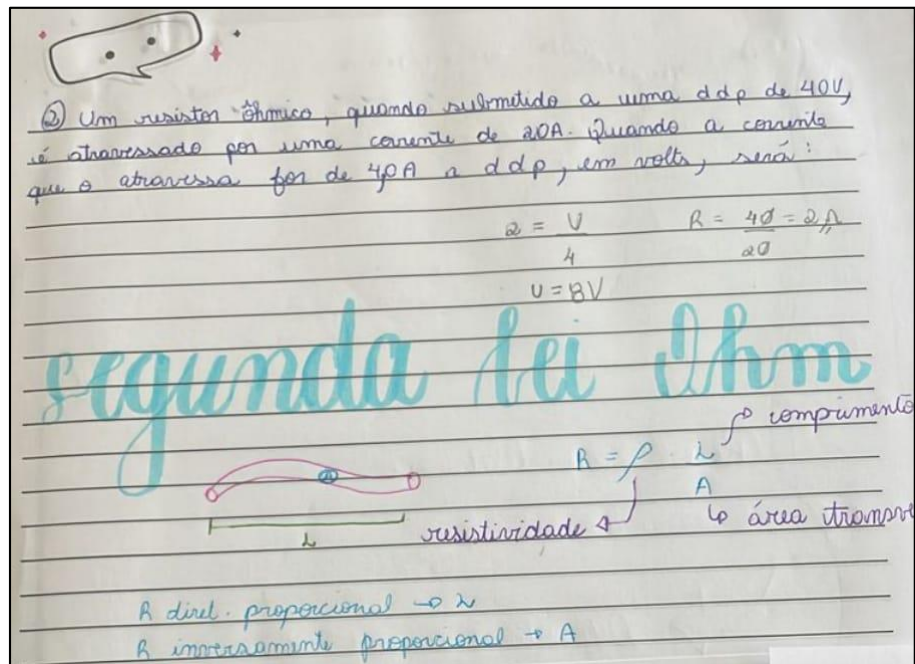 ② Um resistor ôhmico, quando submetido a uma ddp de 40V,
é atravessado por uma corrente de 20A. Quando a corrente
que o atravessa for de 4,0A a ddp, em volts, será:
2 = V/4
R = 40/20 = 2Ω
U = 8V
segunda lei Ohm
R = ρ · L/A
comprimento
resistividade
área transve
L
R diret. proporcional → L
R inversamente proporcional → A